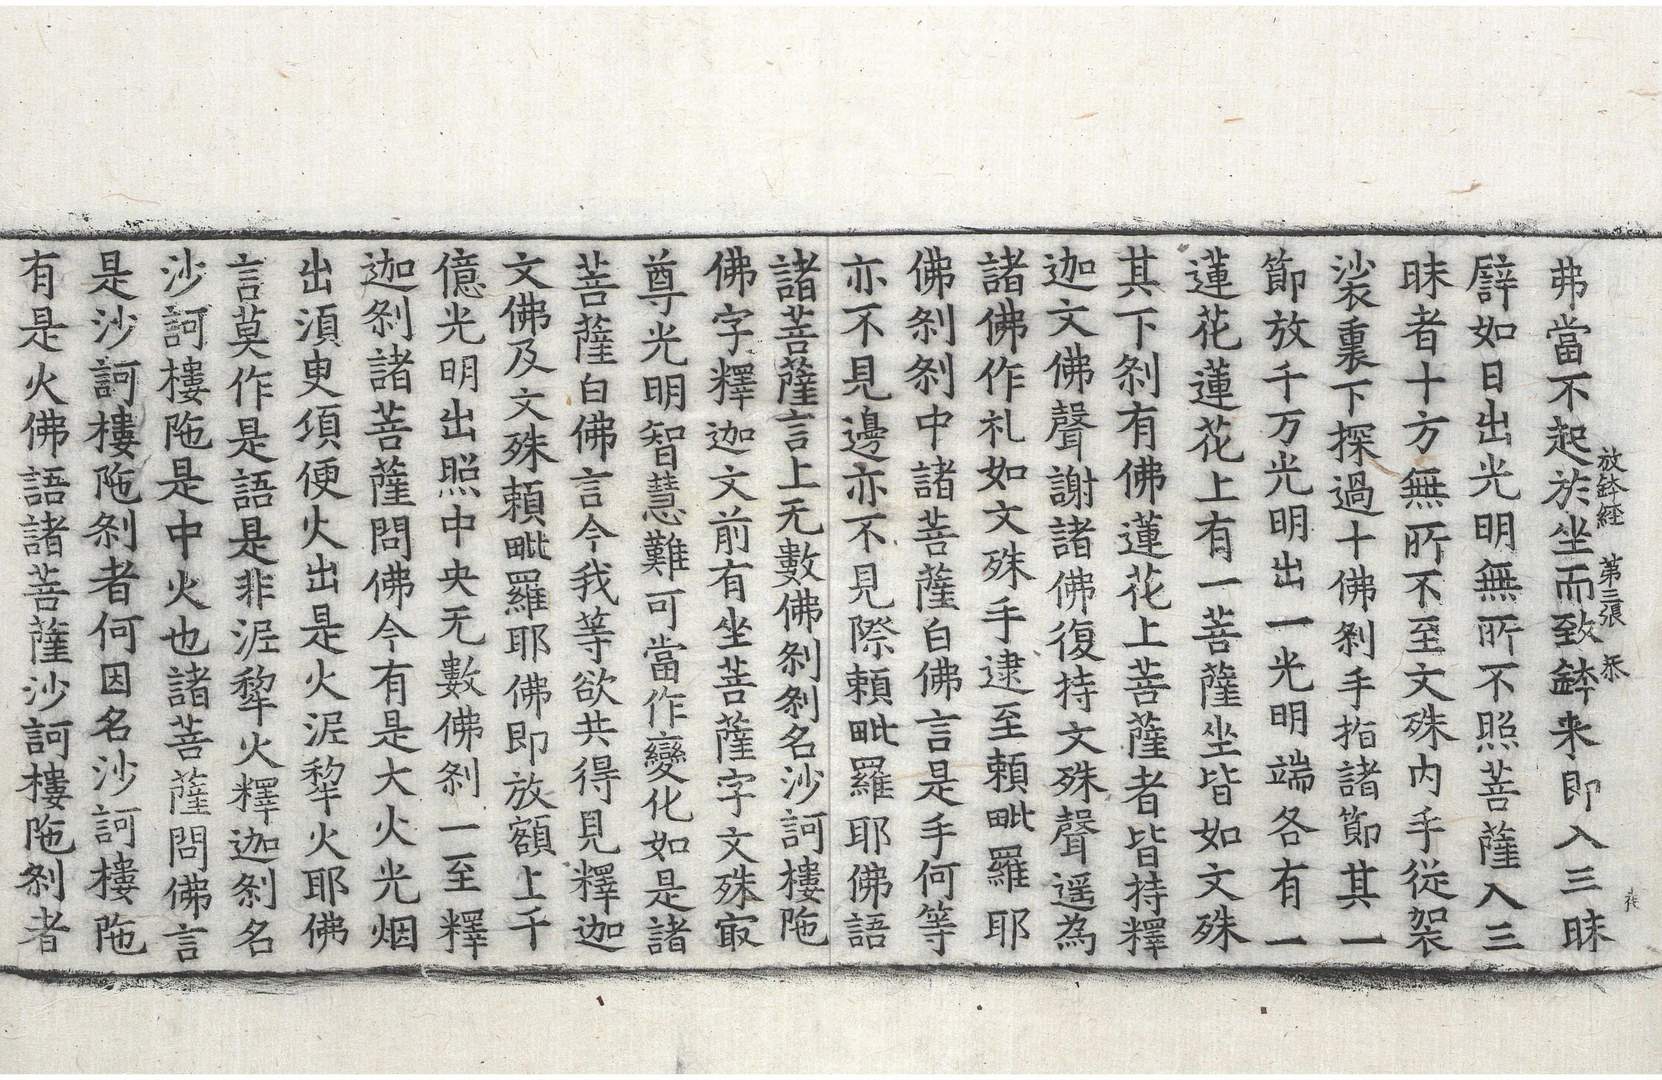 弗當不起於坐而致鉢来即入三昧
放鉢経 第三張 㳟
譬如日出光明無所不照菩薩入三
昧者十方無所不至文殊内手従袈
裟裏下探過十佛刹手指諸節其一
節放千万光明出一光明端各有一
蓮花蓮花上有一菩薩坐皆如文殊
其下刹有佛蓮花上菩薩者皆持釋
迦文佛聲謝諸佛復持文殊聲遥為
諸佛作礼如文殊手逮至頼毗羅耶
佛刹刹中諸菩薩白佛言是手何等
亦不見邊亦不見際頼毗羅耶佛語
諸菩薩言上无數佛刹刹名沙訶樓陁
佛字釋迦文前有坐菩薩字文殊㝡
尊光明智慧難可當作變化如是諸
菩薩白佛言今我等欲共得見釋迦
文佛及文殊頼毗羅耶佛即放額上千
億光明出照中央无數佛刹一至釋
迦刹諸菩薩問佛今有是大火光烟
出湏臾須便火出是火泥犂火耶佛
言莫作是語是非泥犂火釋迦刹名
沙訶樓陁是中火也諸菩薩問佛言
是沙訶樓陁刹者何因名沙訶樓陁
有是火佛語諸菩薩沙訶樓陁刹者